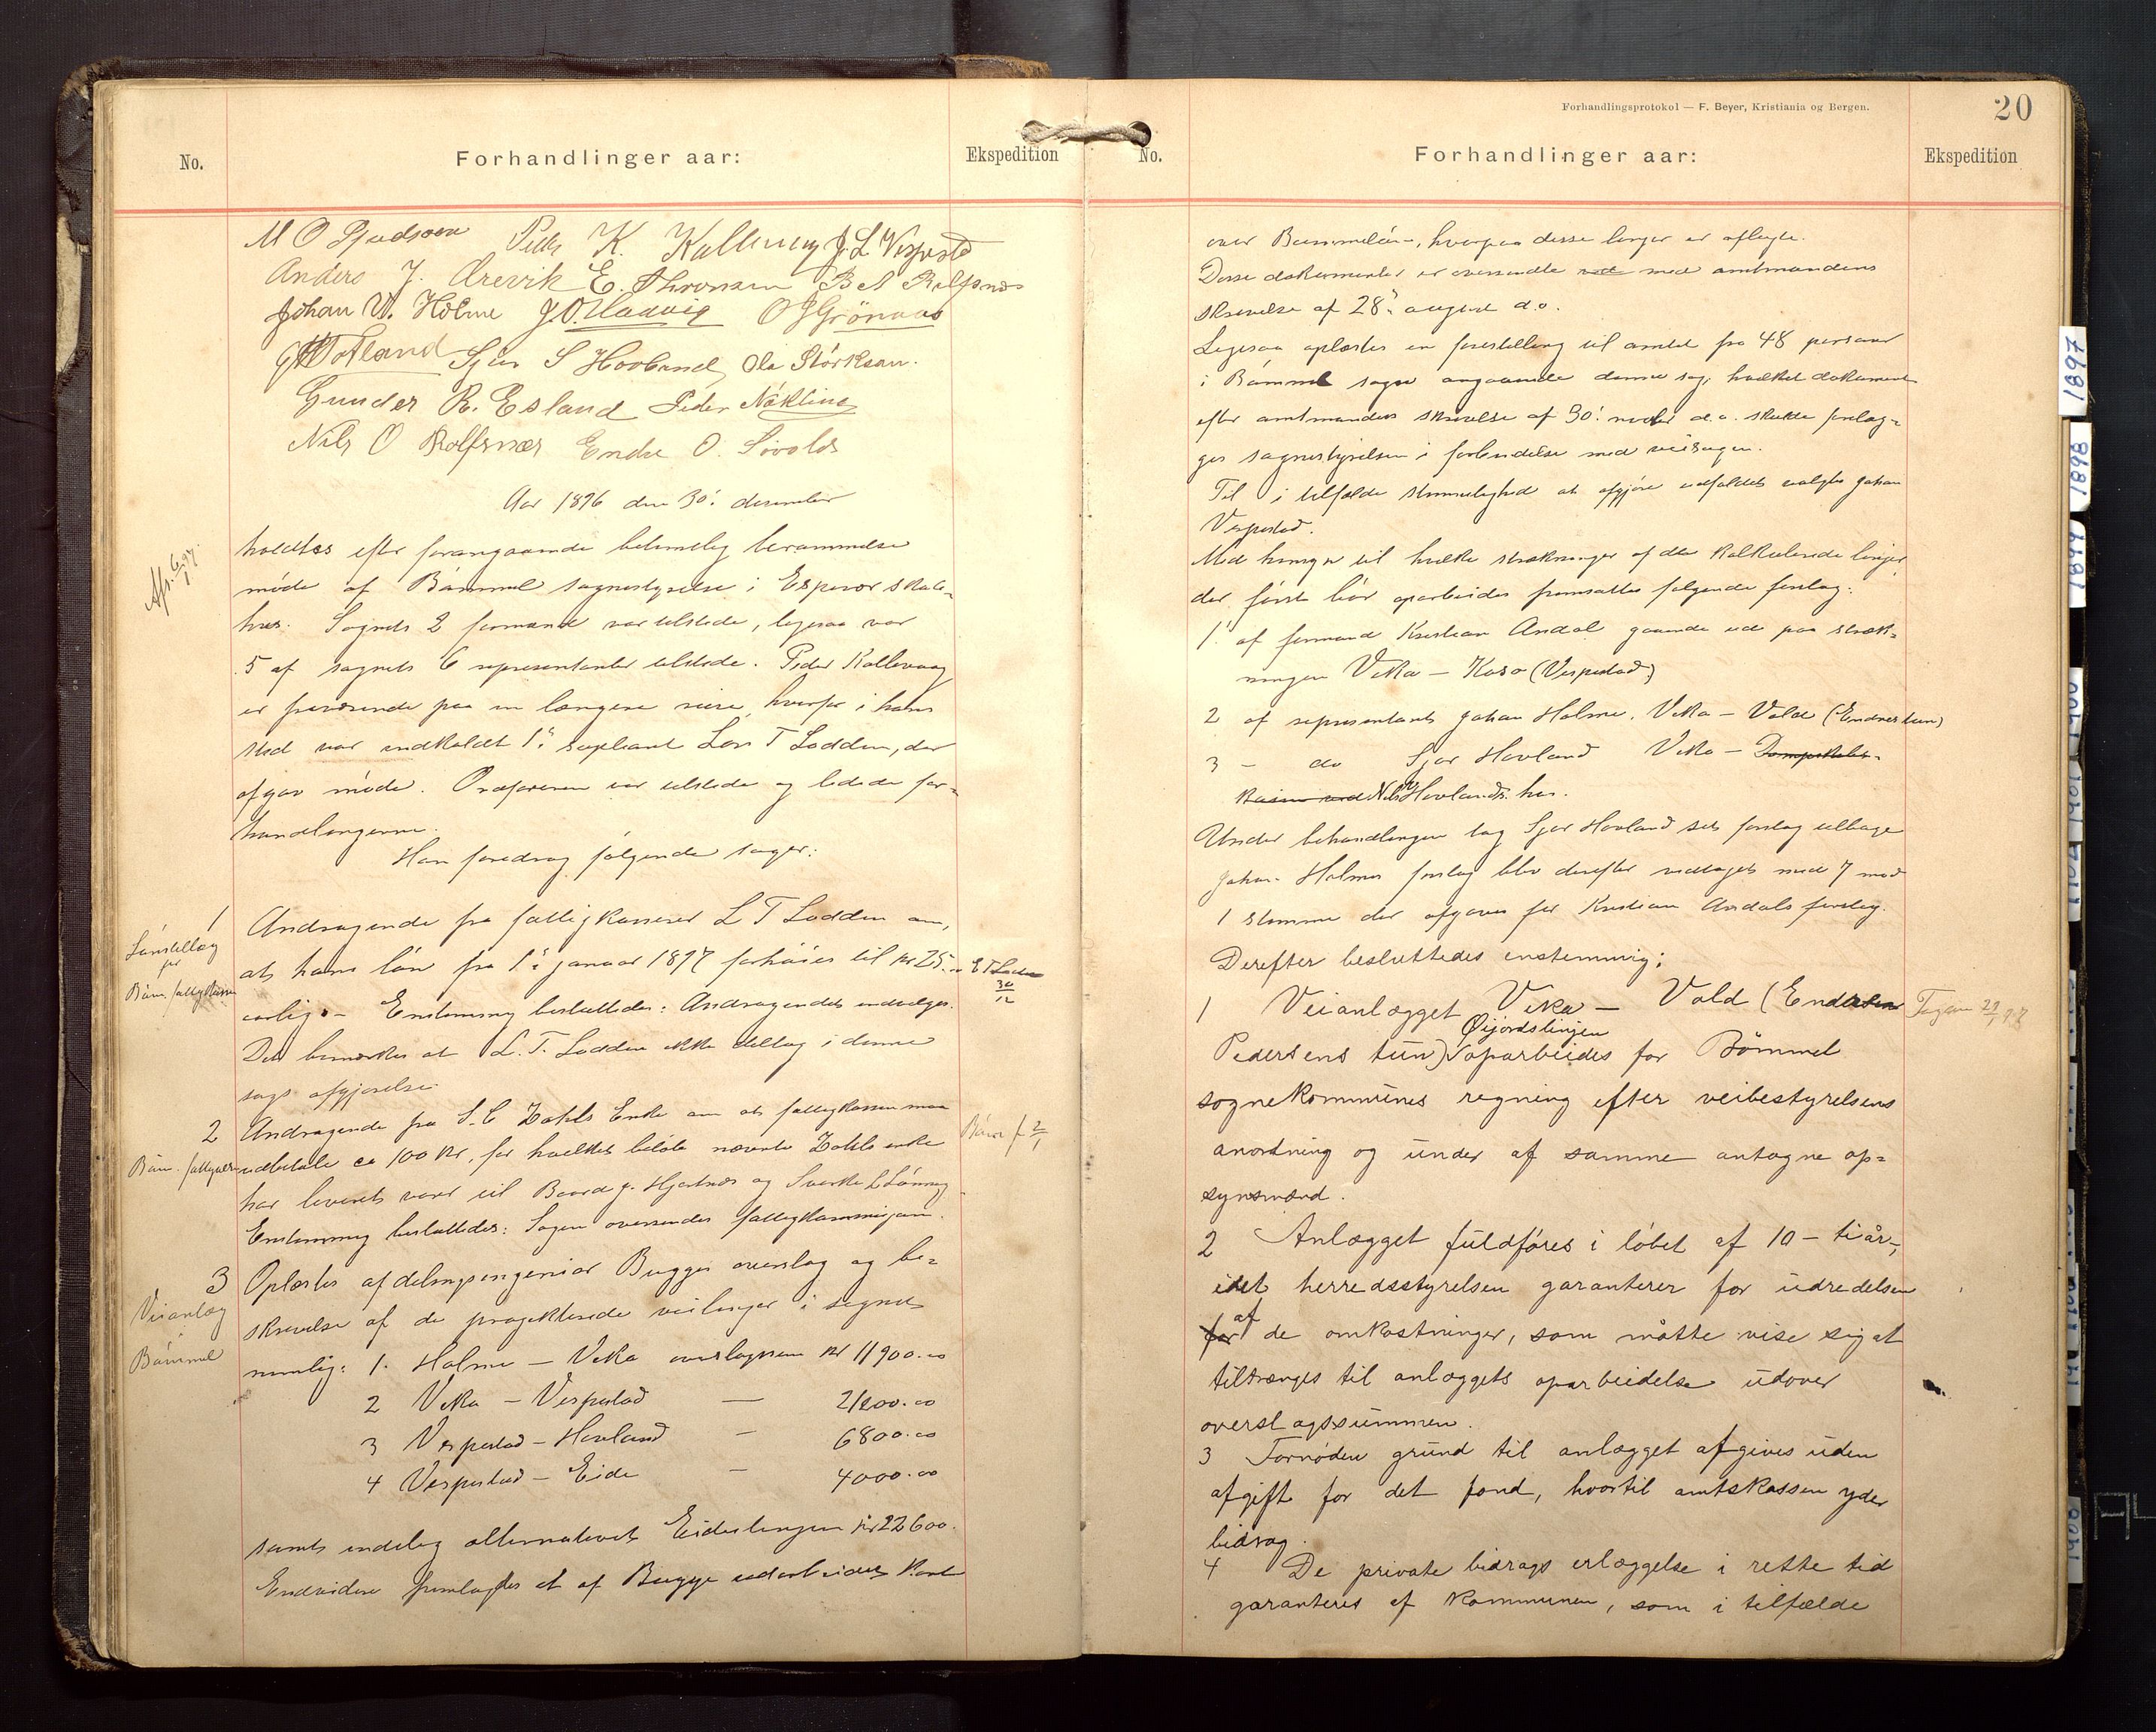 No.
Forhandlinger aar:
Ekspedition
M O
Peder K. Kallevaag J. L. Vespestad
Anders J. Ørevik E. Thronsen B A Rolfsnes
Johan W. Holme J. O. Hadvig O J Grönaas
Totland Sjur S Hovland, Ola Störksen.
Gunder R. Esland Peder Nökling
Nils O Rolfsnæs Endre O.
Aar 1896 den 30. desember
Afs. 6/1 97.
holdtes efter forangaaende betimelig berammelse
möde af Bömmel sognestyrelse i Espevær skole-
hus. Sognets 2 formænd var tilstede, ligesaa var
5 af sognets 6 repræsentanter tilstede. Peder Kallevaag
er fraværende paa en længere reise, hvorfor i hans
sted var indkaldt 1ste supleant Lars T Lodden, der
afgav möde. Ordföreren var tilstede og ledede for-
handlingerne.
Han foredrog følgende sager:
1
Löntillæg
for
Böm. fattigkasse
Andragende fra fattigkasserer L T Lodden om,
at hans lön fra 1ste januar 1897 forhöies til kr 25.00
aarlig. – Enstemmig besluttedes: Andragendet indvilges.
Det bemærkes at L. T. Lodden ikke deltog i denne
sags afgjørelse.
L T Lodden
30/12
2
Böm. fattigvæsen
Andragende fra S. C Dahls Enke om at fattigkassen maa
udbetale ca 100 kr, for hvilket beløb nævnte Dahls enke
har leveret varer til Baard J. Hjartnæs og Sverke L Lönning
Enstemmig besluttedes: Sagen oversendes fattigkommisjonen.
2/1
3
Veianlæg
i
Bömmel
Oplæstes afdelingsingeniør Bugges overslag og be-
skrivelse af de projekterede veilinger i sognet
nemlig: 1. Holme – Vika overslagssum kr 11900.00
2 Vika – Vespestad — 21200.00
3 Vespestad – Hovland — 6800.00
4 Vespestad – Eide — 4000.00
samt endelig alternativet Eidelinjen kr 22600.
Endvidere fremlagdes et af Bugge udarbeidet kart
Forhandlingsprotokol — F. Beyer, Kristiania og Bergen.
20
No.
Forhandlinger aar:
Ekspedition
over Bømmeløen, hvorpaa disse linjer er aflagte.
Disse dokumenter er oversendte med amtmandens
skrivelse af 28de august d.a.
Ligesaa oplæstes en forestilling til amtet fra 48 personer
i Bömmel sogn angaaende denne sag, hvilket dokument
efter amtmandens skrivelse af 30. novbr d.a. skulde forelæg-
ges sognestyrelsen i forbindelse med veisagen.
Til i tilfælde stemmelighed at afgjöre udfaldet valgtes Johan
Vespestad.
Med hensyn til hvilke strækninger af de kalkulerede linjer
der först bör oparbeides fremsattes følgende forslag:
1. af formand Kristian Andal gaaende ud paa stræk-
ningen Vika – Kaso (Vespestad)
2 af repræsentant Johan Holme. Vika – Vold (Endres tun)
3 – do Sjur Hovland Vika –
Nils Hovlands hus.
Under behandlingen tog Sjur Hovland sit forslag tilbage
Johan Holmes forslag blev derefter vedtaget med 7 mod
1 stemme der afgaves for Kristian Andals forslag.
Derefter besluttedes enstemmig:
1 Veianlægget Vika – Vold (Endre
Øijordslinjen
Pedersens tun) oparbeides for Bömmel
sognekommunes regning efter veibestyrelsens
anordning og under af samme antagne op-
synsmænd.
2 Anlægget fuldföres i löbet af 10 – ti år –,
idet herredsstyrelsen garanterer for udredelsen
af de omkostninger, som måtte vise sig at
tiltrænges til anlæggets oparbeidelse udover
overslagssummen.
3 Fornöden grund til anlægget afgives uden
afgift for det fond, hvortil amtskassen yder
bidrag.
4 De private bidrags erlæggelse i rette tid
garanteres af kommunen, som i tilfælde
1897
1898
1899
1900